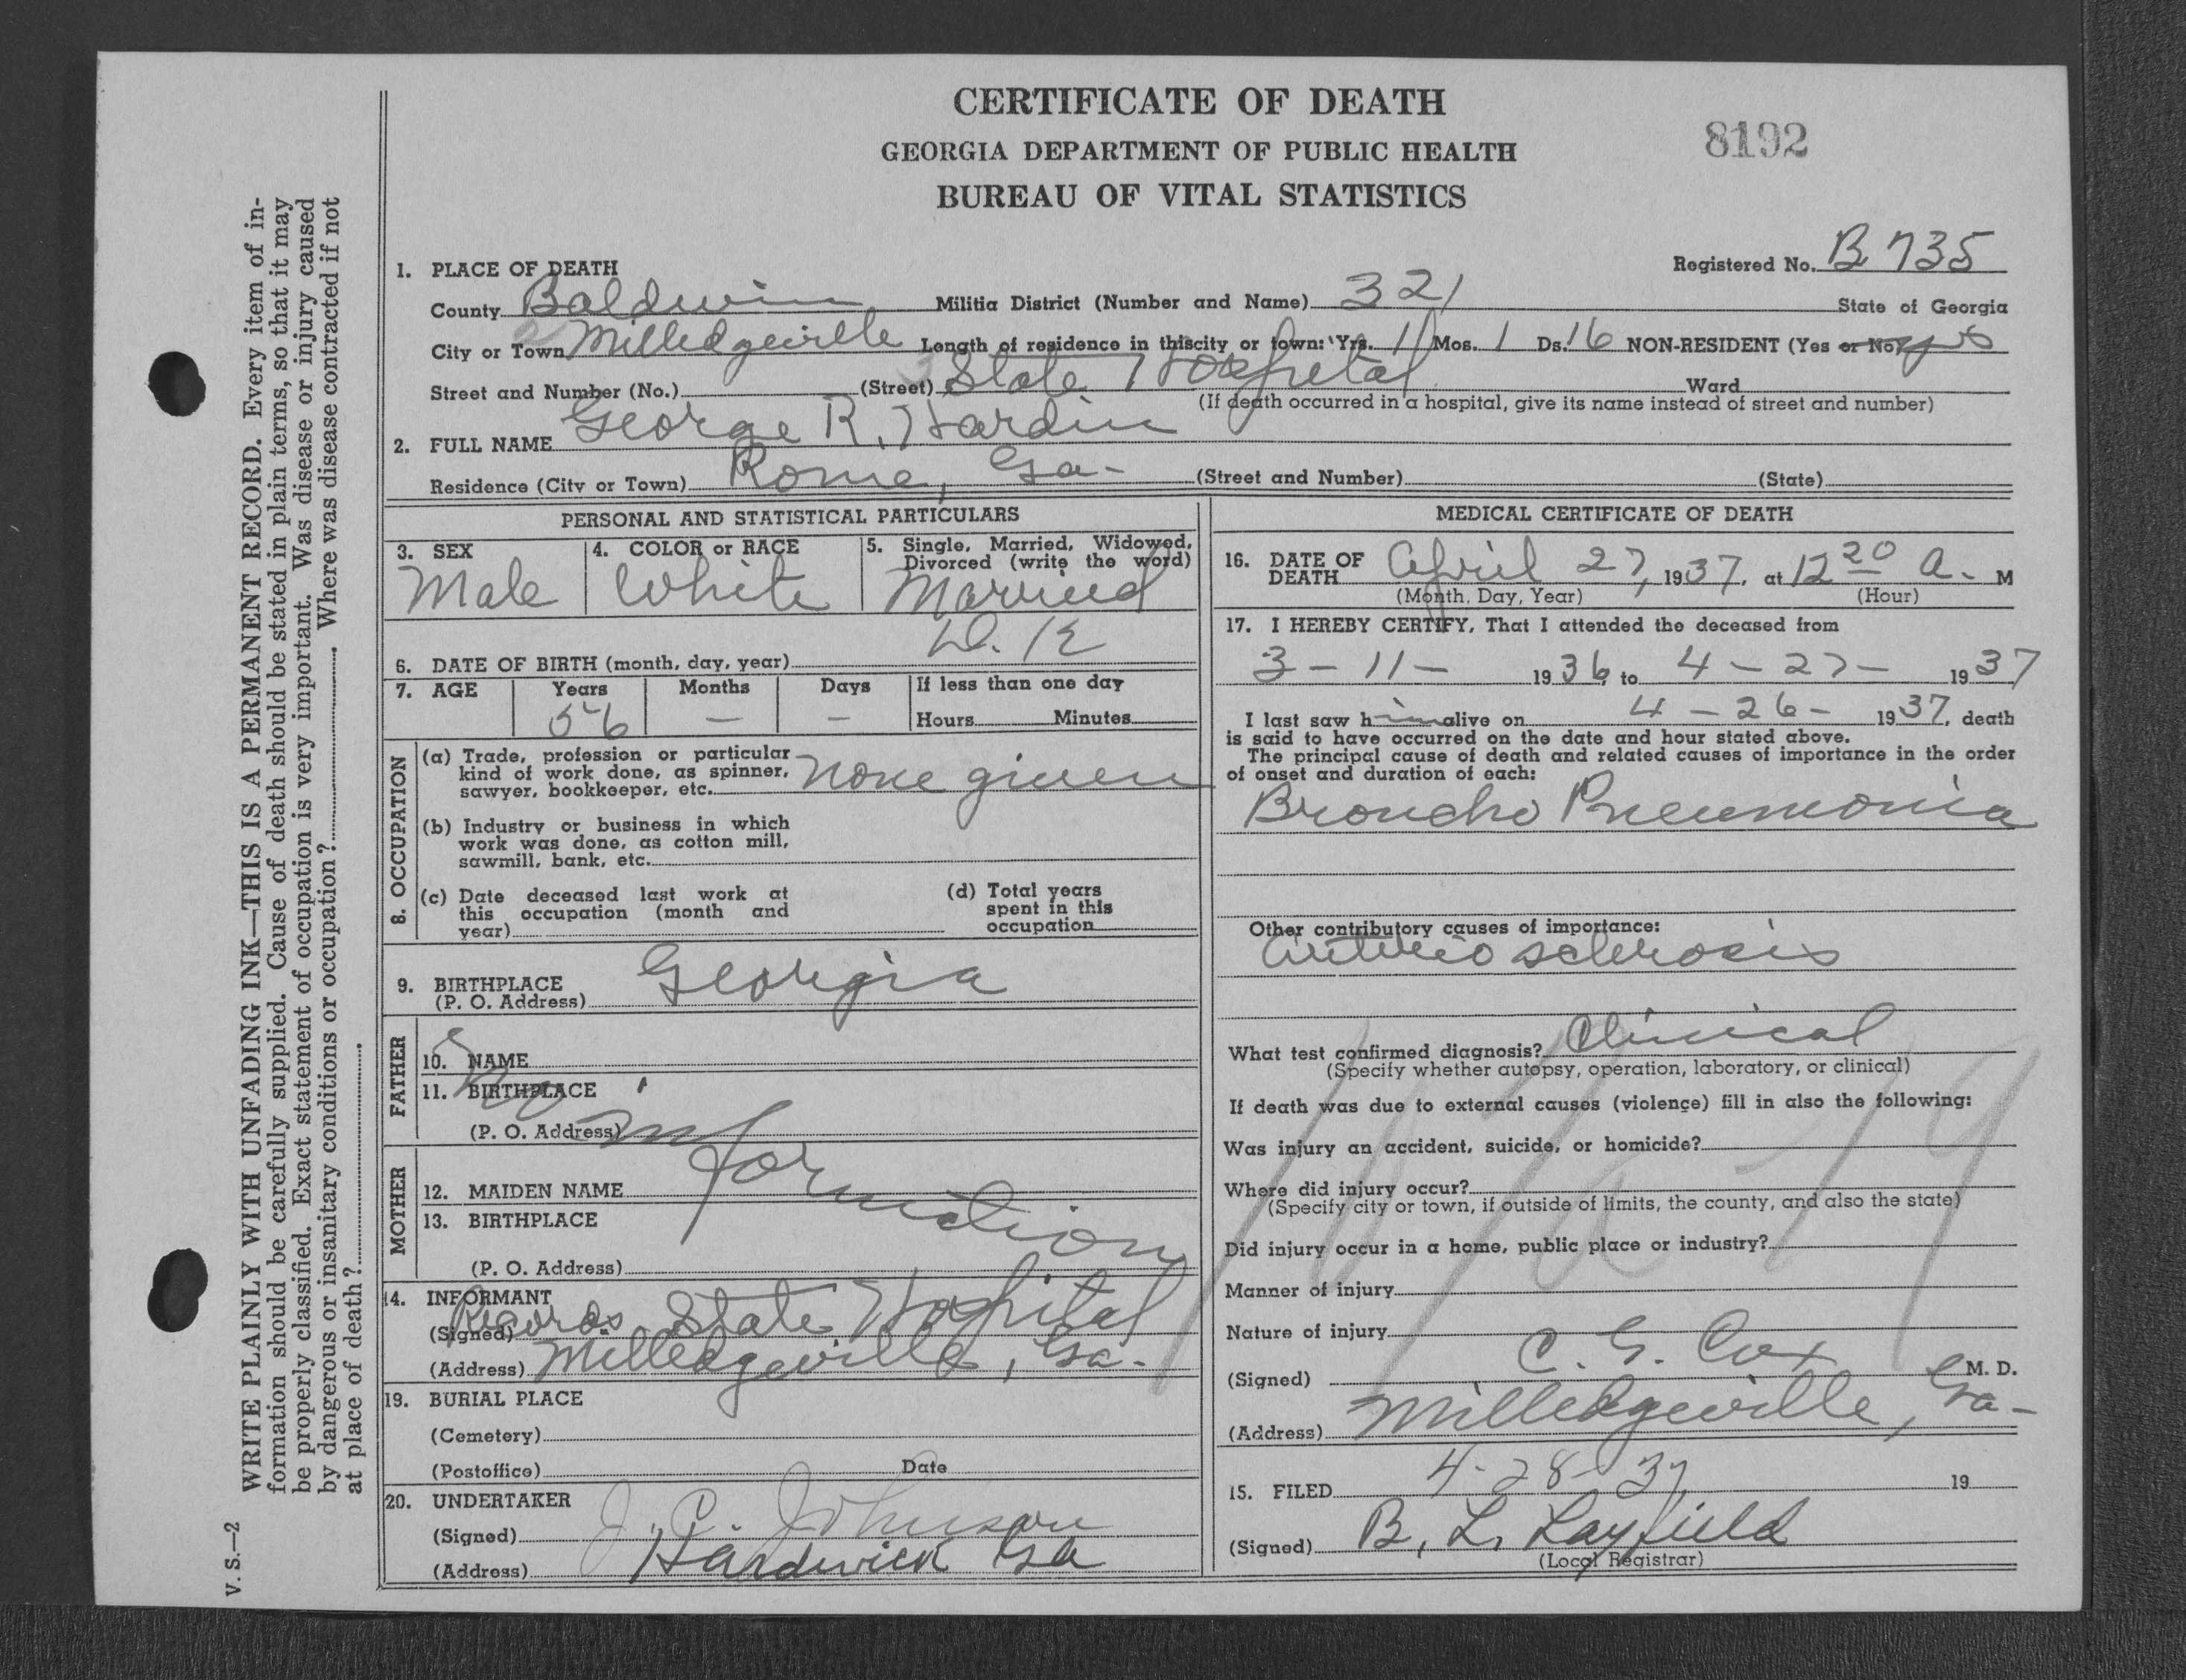 CERTIFICATE OF DEATH
GEORGIA DEPARTMENT OF PUBLIC HEALTH
BUREAU OF VITAL STATISTICS
8192
Registered No. B 735
1. PLACE OF DEATH
County Baldwin Militia District (Number and Name) 321 State of Georgia
City or Town Milledgeville Length of residence in this city or town: Yrs. 1 Mos. 1 Ds. 16 NON-RESIDENT (Yes or No) yes
Street and Number (No.) (Street) State Hospital Ward
(If death occurred in a hospital, give its name instead of street and number)
2. FULL NAME George R. Hardin
Residence (City or Town) Rome, Ga- (Street and Number) (State)
PERSONAL AND STATISTICAL PARTICULARS
3. SEX Male
4. COLOR or RACE White
5. Single, Married, Widowed, Divorced (write the word) Married
6. DATE OF BIRTH (month, day, year) D. K
7. AGE Years 56 Months - Days - If less than one day Hours Minutes
8. OCCUPATION
(a) Trade, profession or particular
kind of work done, as spinner,
sawyer, bookkeeper, etc. none given
(b) Industry or business in which
work was done, as cotton mill,
sawmill, bank, etc.
(c) Date deceased last work at
this occupation (month and
year)
(d) Total years
spent in this
occupation
9. BIRTHPLACE
(P. O. Address) Georgia
FATHER
10. NAME
11. BIRTHPLACE
(P. O. Address)
No information
MOTHER
12. MAIDEN NAME
13. BIRTHPLACE
(P. O. Address)
14. INFORMANT
(Signed) Records State Hospital
(Address) Milledgeville, Ga.
19. BURIAL PLACE
(Cemetery)
(Postoffice) Date
20. UNDERTAKER
(Signed) J. C. Johnson
(Address) Hardwick Ga
MEDICAL CERTIFICATE OF DEATH
16. DATE OF DEATH April 27, 1937, at 12 20 a. M
(Month, Day, Year) (Hour)
17. I HEREBY CERTIFY, That I attended the deceased from
3-11- 1936 to 4-27- 1937
I last saw him alive on 4-26- 1937, death
is said to have occurred on the date and hour stated above.
The principal cause of death and related causes of importance in the order
of onset and duration of each:
Broncho Pneumonia
Other contributory causes of importance:
Arterio sclerosis
What test confirmed diagnosis? Clinical
(Specify whether autopsy, operation, laboratory, or clinical)
If death was due to external causes (violence) fill in also the following:
Was injury an accident, suicide, or homicide?
Where did injury occur?
(Specify city or town, if outside of limits, the county, and also the state)
Did injury occur in a home, public place or industry?
Manner of injury
Nature of injury
(Signed) C. G. Cox M. D.
(Address) Milledgeville, Ga-
15. FILED 4-28-37 19
(Signed) B. L. Layfield
(Local Registrar)
WRITE PLAINLY WITH UNFADING INK—THIS IS A PERMANENT RECORD. Every item of in-
formation should be carefully supplied. Cause of death should be stated in plain terms, so that it may
be properly classified. Exact statement of occupation is very important. Was disease or injury caused
by dangerous or insanitary conditions or occupation? Where was disease contracted if not
at place of death?
V. S.—2